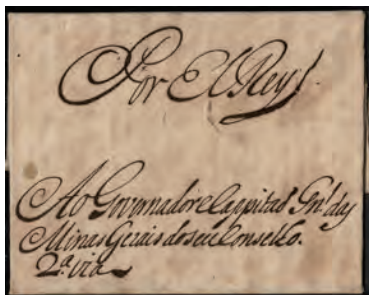 Por El Rey
Ao Governador e Cappitaõ Gn.l das
Minas Gerais do seu Conselho.
2.a via